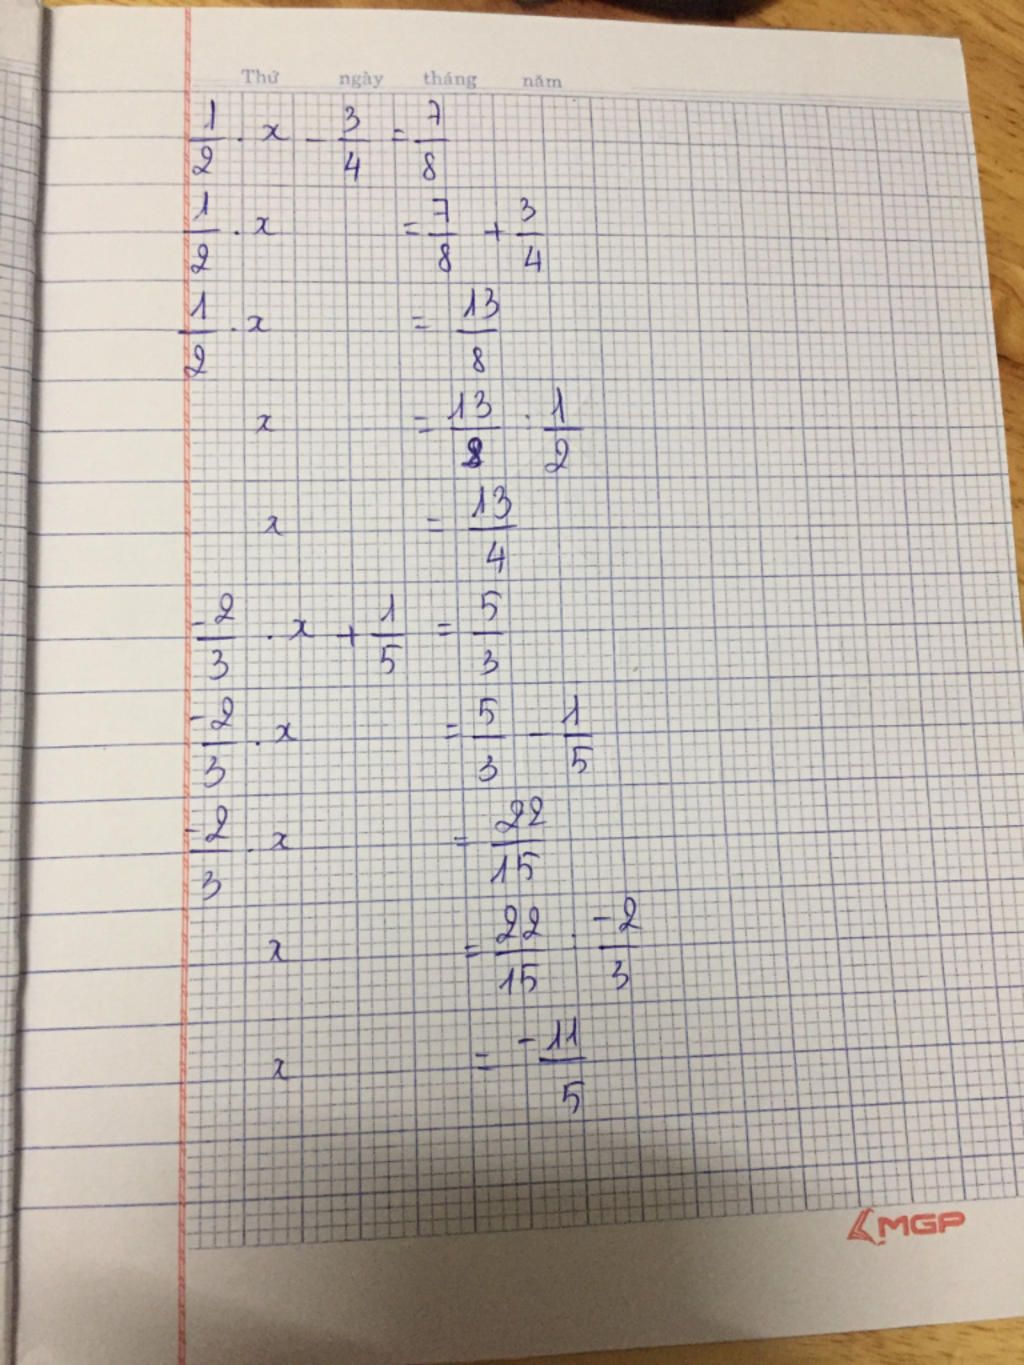 Thứ ngày tháng năm
1/2 . x - 3/4 = 7/8
1/2 . x = 7/8 + 3/4
1/2 . x = 13/8
x = 13/8 . 1/2
x = 13/4
-2/3 . x + 1/5 = 5/3
-2/3 . x = 5/3 - 1/5
-2/3 . x = 22/15
x = 22/15 : -2/3
x = -11/5
MGP